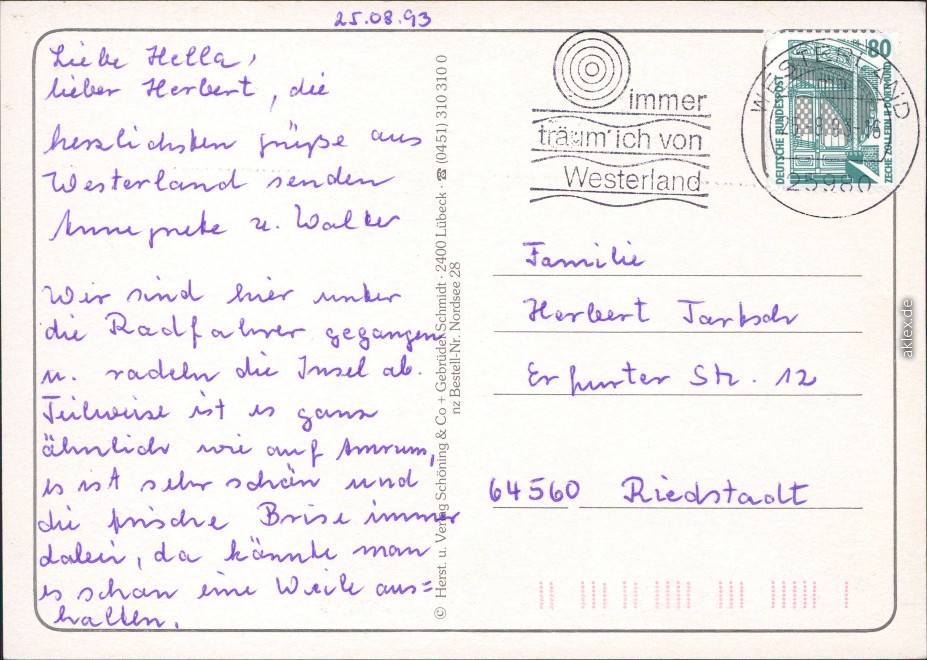 25.08.93
Liebe Hella,
lieber Herbert, die
herzlichsten Grüße aus
Westerland senden
Annegrete u. Walter
Wir sind hier unter
die Radfahrer gegangen
u. radeln die Insel ab.
Teilweise ist es ganz
ähnlich wie auf Amrum,
es ist sehr schön und
die frische Brise immer
dabei, da könnte man
es schon eine Weile aus=
halten.
© Herst. u. Verlag Schöning & Co + Gebrüder Schmidt · 2400 Lübeck · ☎ (0451) 310 310 0
nz Bestell-Nr. Nordsee 28
immer
träum' ich von
Westerland
WESTERLAND
25980
80
DEUTSCHE BUNDESPOST
ZECHE ZOLLERN II DORTMUND
Familie
Herbert Tartsch
Erfurter Str. 12
64560 Riedstadt
aklex.de